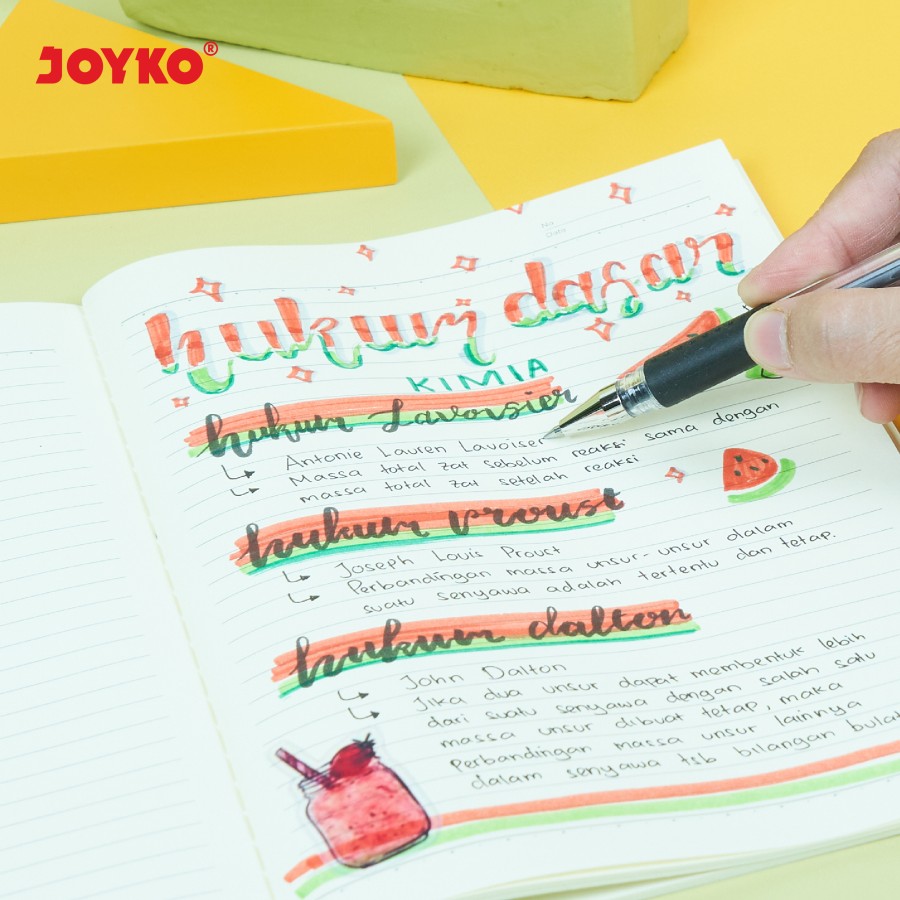 JOYKO®
No
Date
hukum dasar
KIMIA
hukum Lavoisier
Antonie Lauren Lavoiser
Massa total zat sebelum reaksi sama dengan
massa total zat setelah reaksi
hukum proust
Joseph Louis Proust
Perbandingan massa unsur-unsur dalam
suatu senyawa adalah tertentu dan tetap.
hukum dalton
John Dalton
Jika dua unsur dapat membentuk lebih
dari suatu senyawa dengan salah satu
massa unsur dibuat tetap, maka
Perbandingan massa unsur lainnya
dalam senyawa tsb bilangan bulat